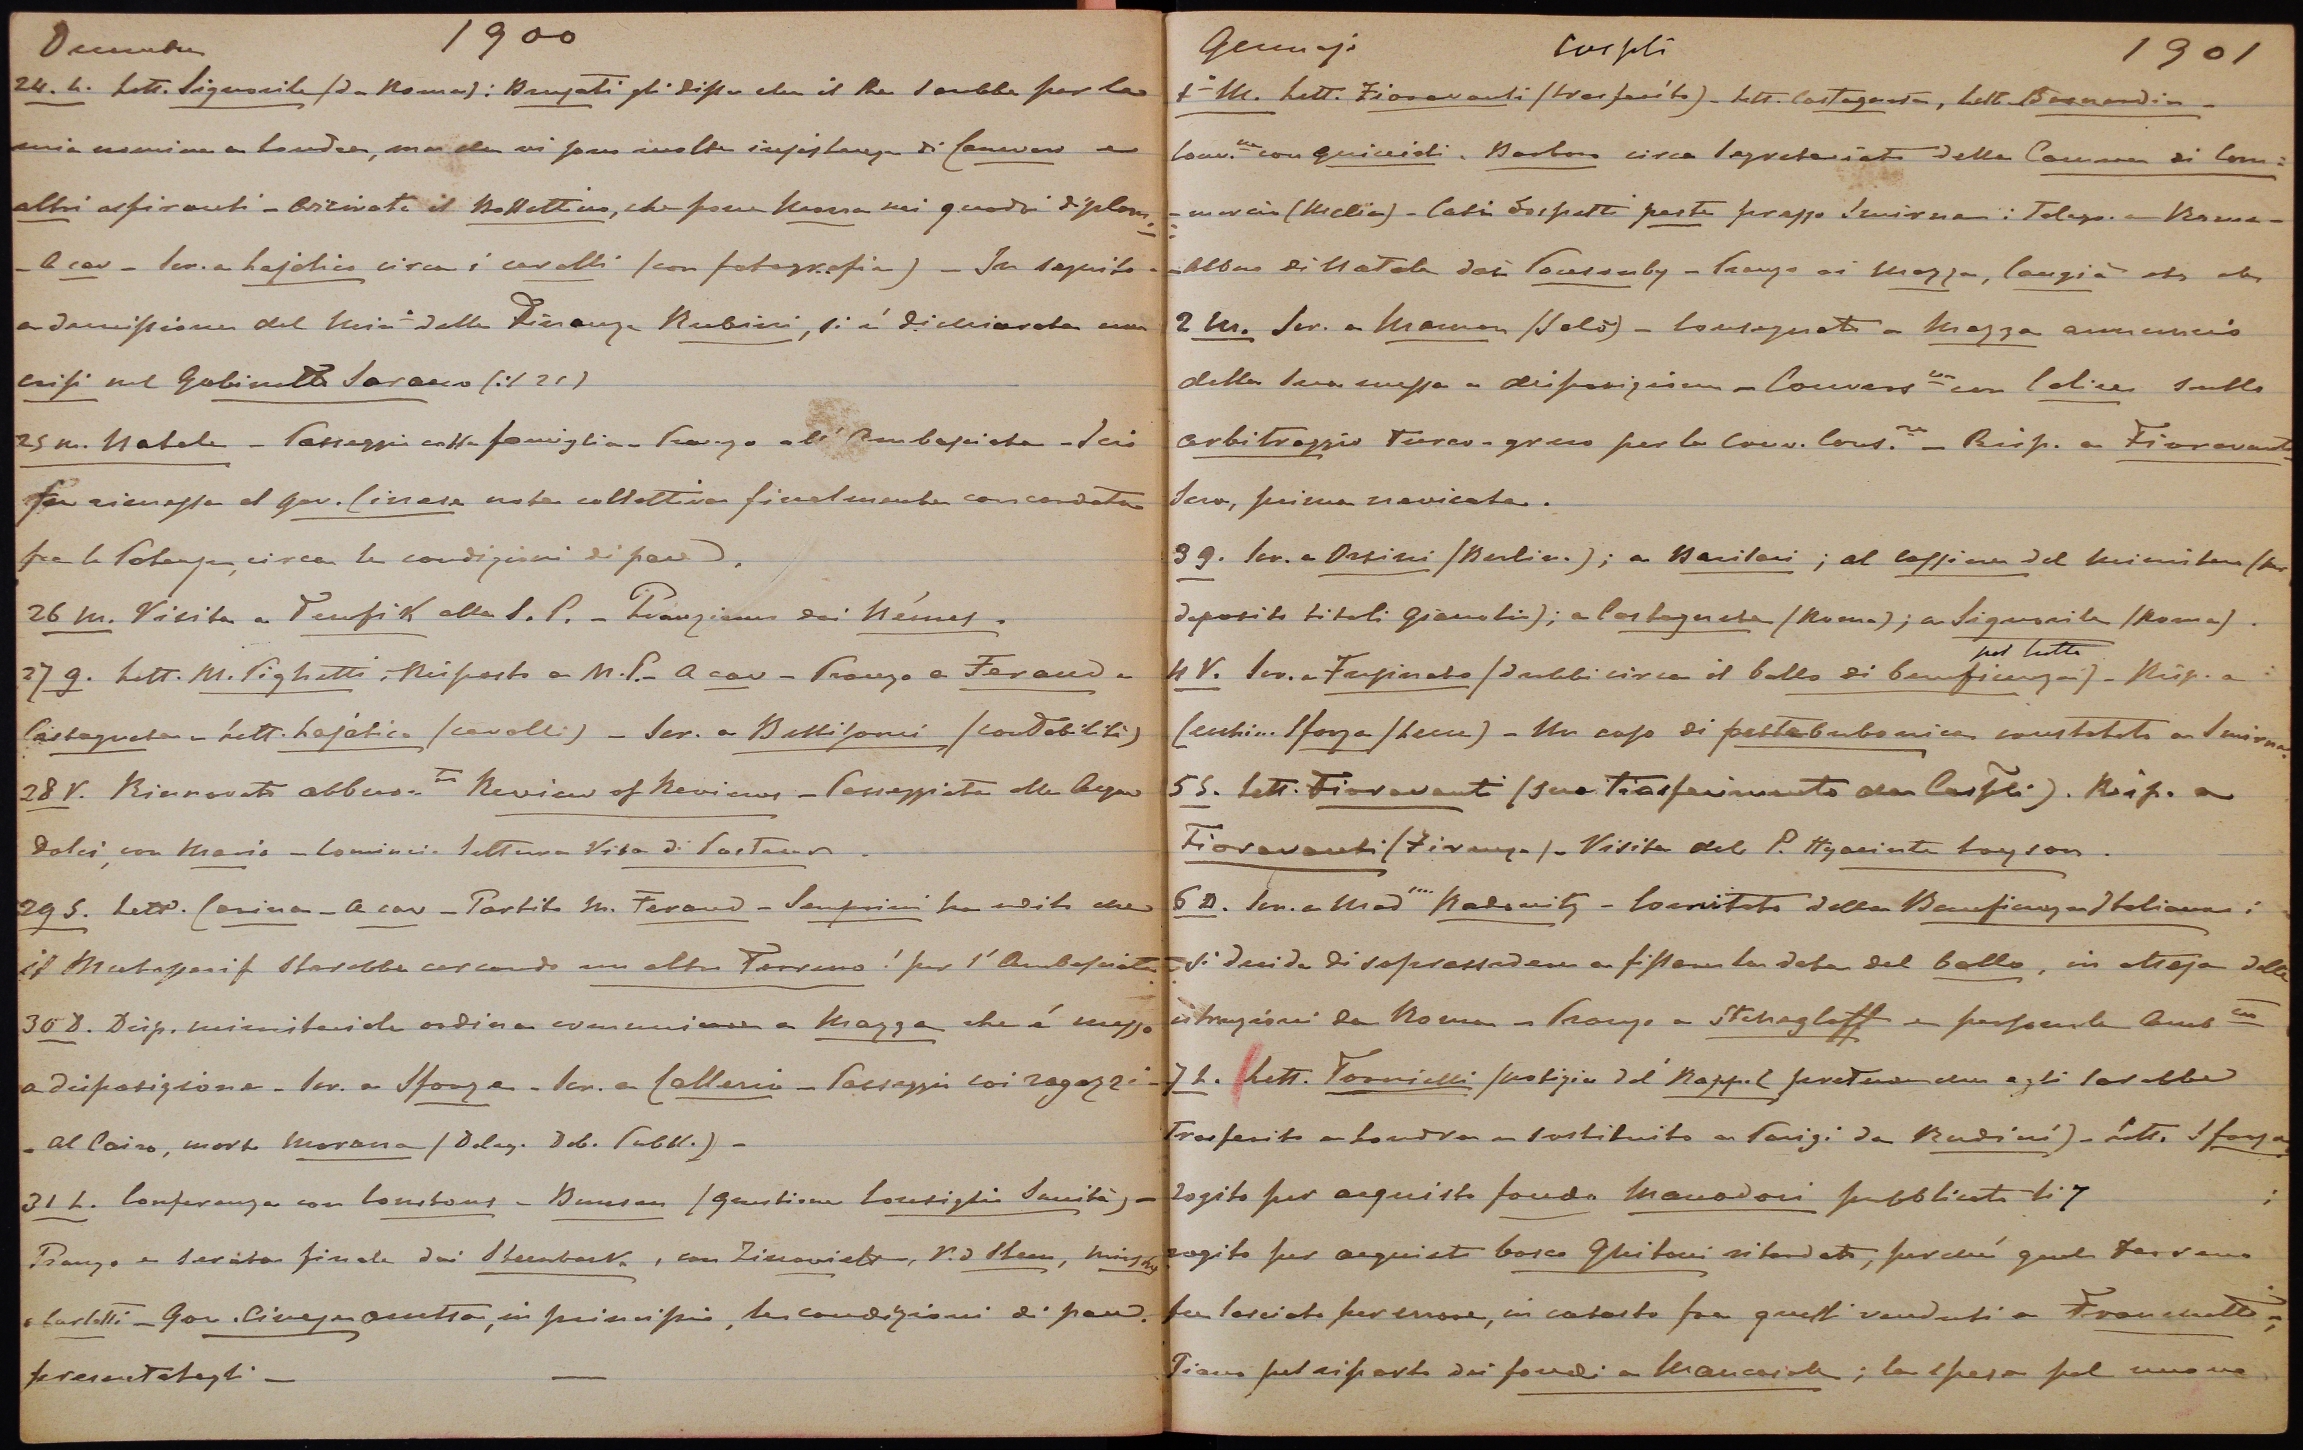 Decembre 1900
24. L. Lett. Signorile (da Roma): Brugati gli disse che il Re sarebbe per la
mia nomina a Londra, ma che vi sono molte insistenze di Canevaro e
altri aspiranti - Arrivato il Bollettino, che pone Mazza nei quadri diplom.
- A cav - Scr. a Lajatico circa i cavalli (con fotografia) - In seguito
a demissione del Min.o delle Finanze Rubini, si è dichiarata una
crisi nel Gabinetto Saracco (il 21)
25 M. Natale - Passeggio colla famiglia - Pranzo all'Ambasciata - Ieri
fu rimessa al Gov. Cinese nota collettiva finalmente concordata
fra le Potenze, circa le condizioni di pace.
26 M. Visita a Tewfik alla S. P. - Pranziamo dai Némes.
27 G. Lett. M. Pighetti. Risposto a M. P. - A cav - Pranzo a Feraud e
Castagneta - Lett. Lajatico (cavalli) - Scr. a Bettisomi
28 V. Rinnovato abbuon.to Review of Reviews - Passeggiata alle Acque
Dolci, con Mario - Comincio lettura Vita di Pasteur.
29 S. Lett. Carina - A cav - Partito M. Feraud - Semprini ha udito che
il Mutessarif starebbe cercando un altro Terreno! per l'Ambasciata.
30 D. Disp. ministeriale ordina comunicare a Mazza che è messo
a disposizione - Scr. a Sforza - Scr. a Calleri - Passeggio coi ragazzi -
- Al Cairo, morto Morana (Deleg. Deb. Pubbl.) -
31 L. Conferenza con Constans - Bunsen (questione Consiglio Sanità) -
Pranzo e serata finale dai Steenbock, con Zinoview, V. d. Steen,
Carlotti - Gov. Cinese accetta, in principio, le condizioni di pace
presentategli -
Gennajo Caspoli 1901
1° M. Lett. Fioravanti (trasferito) - Lett. Castagneta, Lett. Bernardin -
Conv.ne con Guicioli. Barbaro circa Segretariato della Camera di Com-
- mercio (Melia) - Casi sospetti peste presso Smirna: Telegr. a Roma -
- Albero di Natale dai Ponsonby - Pranzo ai Mazza, Cangià etc etc
2 M. Scr. a Mamon (Salò) - Consegnato a Mazza annuncio
della sua messa a disposizione - Convers.ne con Calice sullo
arbitraggio Turco-greco per la Conv. Cons.re - Risp. a Fioravanti
Sera, prima nevicata.
3 G. Scr. a Orsini (Berlino); a Barilari; al Cassiere del Ministero (per
deposito titoli Gianotti); a Castagneta (Roma); a Signorile (Roma).
4 V. Scr. a Fusinato (dubbi circa il ballo di beneficenza) pel lutto - Risp. a
Sforza - Un caso di peste bubonica constatato a Smirna.
5 S. Lett. Fioravanti (suo trasferimento da Caspoli). Risp. a
Fioravanti (Firenze) - Visita del P. Hyacinthe Loyson.
6 D. Scr. a Mad.me Radowitz - Comitato della Beneficenza Italiana:
si decide di soprassedere a fissare la data del ballo, in attesa delle
istruzioni da Roma - Pranzo a e personale Amb.ta
7 L. Lett. Tornielli (notizia del Rappel pretende che egli sarebbe
trasferito a Londra e sostituito a Parigi da Rudinì) - Lett. Sforza
rogito per acquisto fondo Manodori pubblicato li 7
rogito per acquisto bosco Ghitoni ritardato, perché quel terreno
fu lasciato per errore, in catasto fra quelli venduti a Franchetti -
Piano pel riparto dei fondi a Mancasale; la spesa pel nuovo